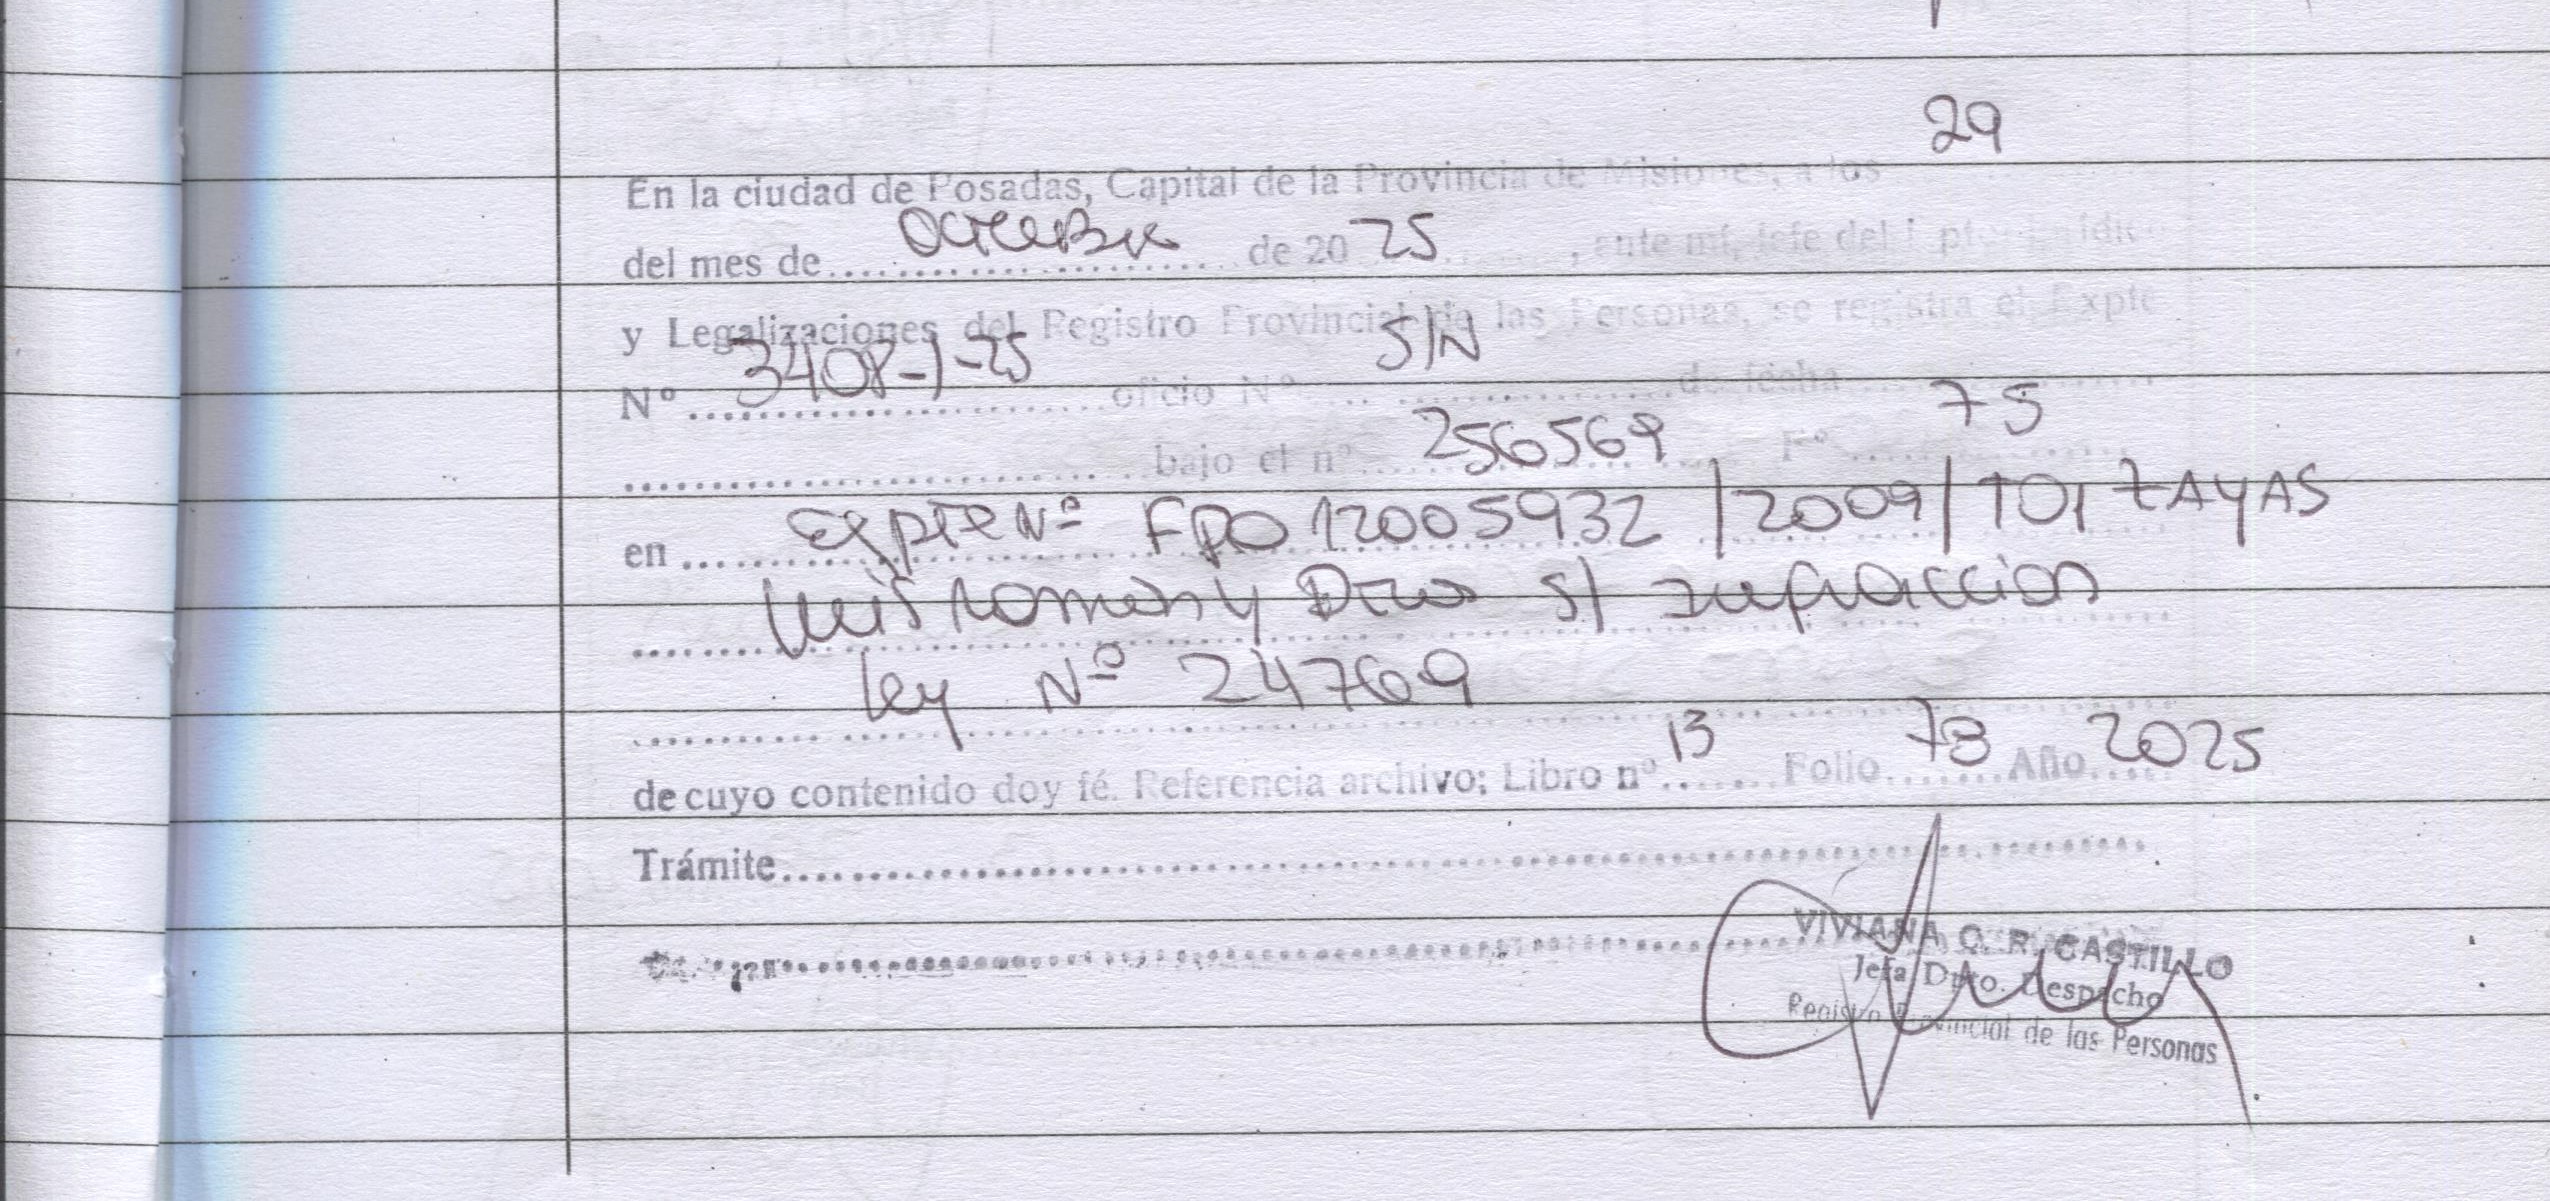 29
En la ciudad de Posadas, Capital de la Provincia de Misiones, a los
del mes de octubre de 20 25, ante mí, Jefe del Dpto. Jurídico
y Legalizaciones del Registro Provincial de las Personas, se registra el Expte
Nº 3408-1-25 oficio Nº S/N de fecha
bajo el nº 256569 Fº 75
en Expte Nº FPO 12005932/2009/TO1 ZAYAS
Luis Roman y Otros S/ Infraccion
Ley Nº 24769
de cuyo contenido doy fé. Referencia archivo: Libro nº 13 Folio 73 Año 2025
Trámite
VIVIANA C. R. CASTILLO
Jefa Dpto. Despacho
Registro Provincial de las Personas